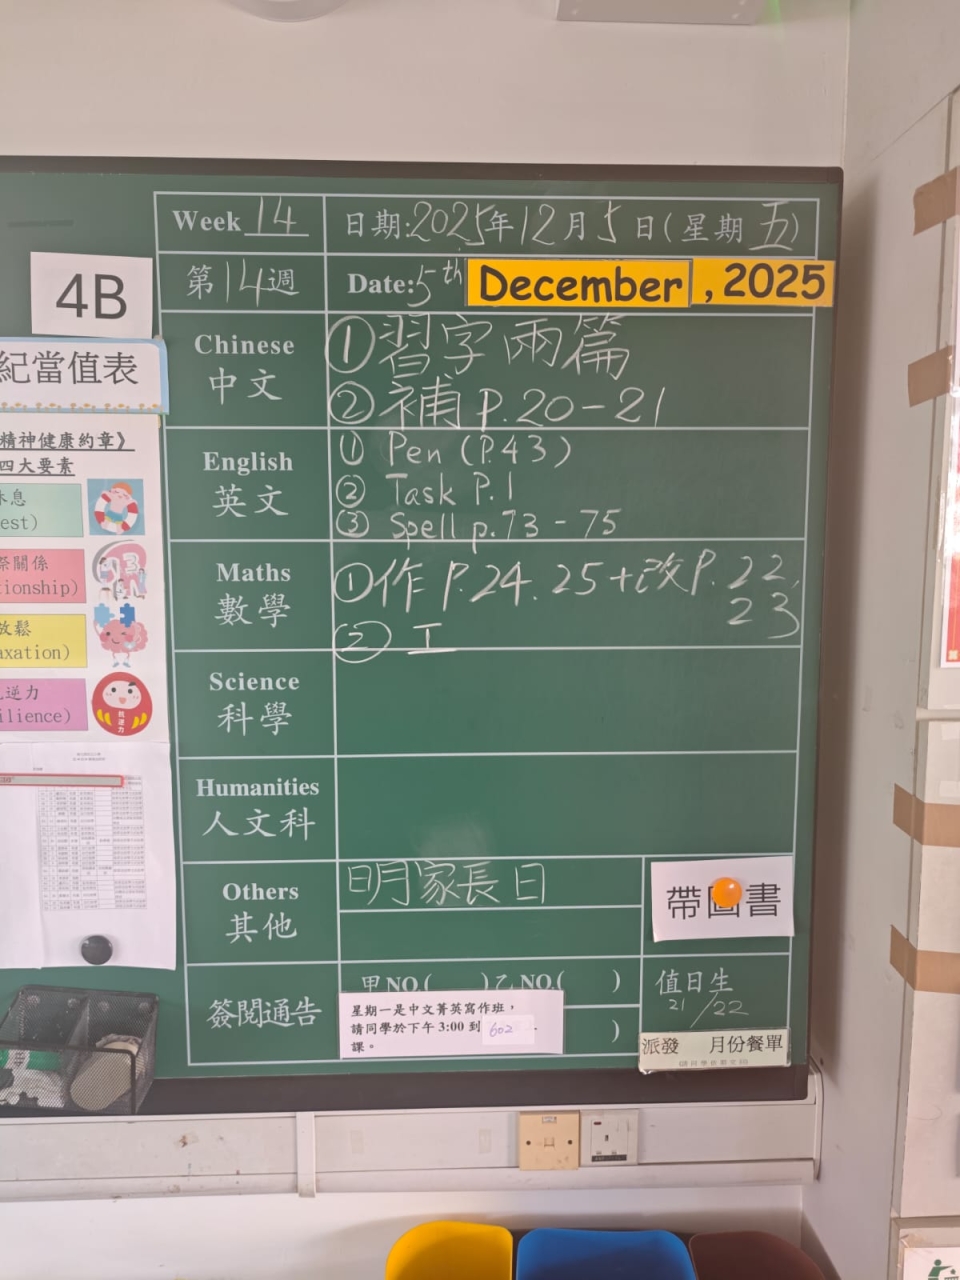 Week 14
日期:2025年12月5日(星期五)
第14週
Date: 5th December, 2025
4B
紀當值表
精神健康約章》
四大要素
休息
est)
際關係
tionship)
放鬆
axation)
逆力
ilience)
抗逆力
Chinese
中文
①習字兩篇
②補 P.20-21
English
英文
① Pen (P.43)
② Task P.1
③ Spell p.73-75
Maths
數學
①作 P.24.25+改P.22,
23
② 工
Science
科學
Humanities
人文科
Others
其他
明家長日
帶圖書
簽閱通告
甲NO( )乙NO( )
)
星期一是中文菁英寫作班，
請同學於下午3:00到 602
課。
值日生
21/22
派發 月份餐單